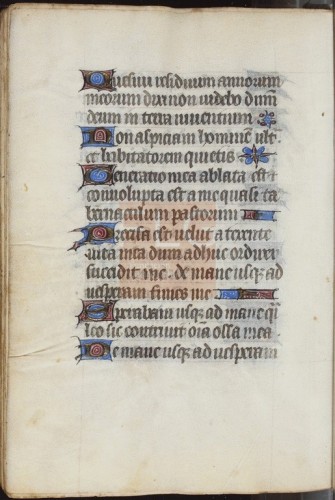 Quesiui residuum annorum
meorum dixi non uidebo dn̄m
deum in terra uiuentium
Non aspiciam hominē ult͛
et habitatorem quietis
Generatio mea ablata est et
conuoluta est a me quasi ta
bernaculum pastorum
Precisa est uelut a texente
uita mea dum adhuc ordirer
succidit me de mane usq; ad
uesperam finies me
Sperabam usq; ad mane q̄
leo sic contriuit oīa ossa mea
De mane usq; ad uesperam